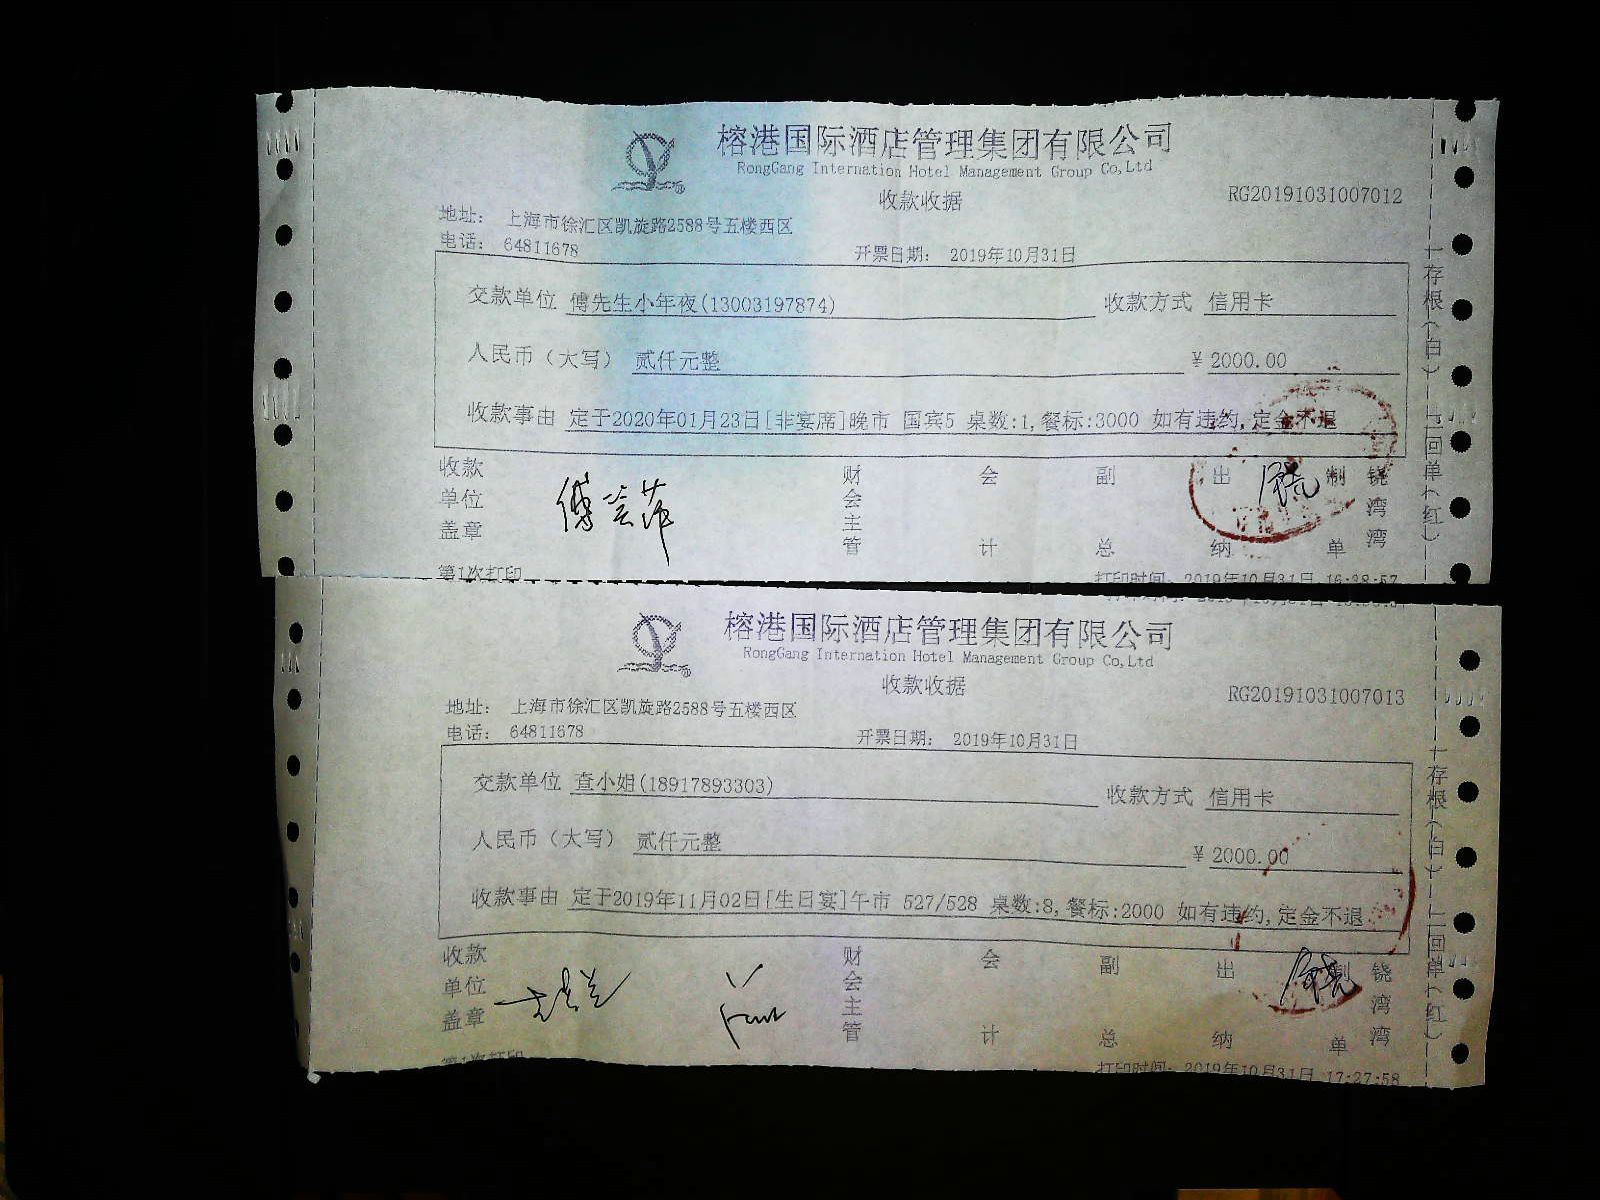 榕港国际酒店管理集团有限公司
RongGang Internation Hotel Management Group Co,Ltd
收款收据
RG20191031007012
地址： 上海市徐汇区凯旋路2588号五楼西区
电话： 64811678
开票日期： 2019年10月31日
交款单位 傅先生小年夜(13003197874) 收款方式 信用卡
人民币（大写） 贰仟元整 ￥2000.00
收款事由 定于2020年01月23日[非宴席]晚市 国宾5 桌数:1,餐标:3000 如有违约,定金不退
收款单位盖章 财会主管 会计 副总 出纳 制单 饶湾湾
第1次打印
打印时间： 2019年10月31日 16:38:57
一存根(白) 二回单(红)
榕港国际酒店管理集团有限公司
RongGang Internation Hotel Management Group Co,Ltd
收款收据
RG20191031007013
地址： 上海市徐汇区凯旋路2588号五楼西区
电话： 64811678
开票日期： 2019年10月31日
交款单位 查小姐(18917893303) 收款方式 信用卡
人民币（大写） 贰仟元整 ￥2000.00
收款事由 定于2019年11月02日[生日宴]午市 527/528 桌数:8,餐标:2000 如有违约,定金不退
收款单位盖章 财会主管 会计 副总 出纳 制单 饶湾湾
第1次打印
打印时间： 2019年10月31日 17:27:58
一存根(白) 二回单(红)